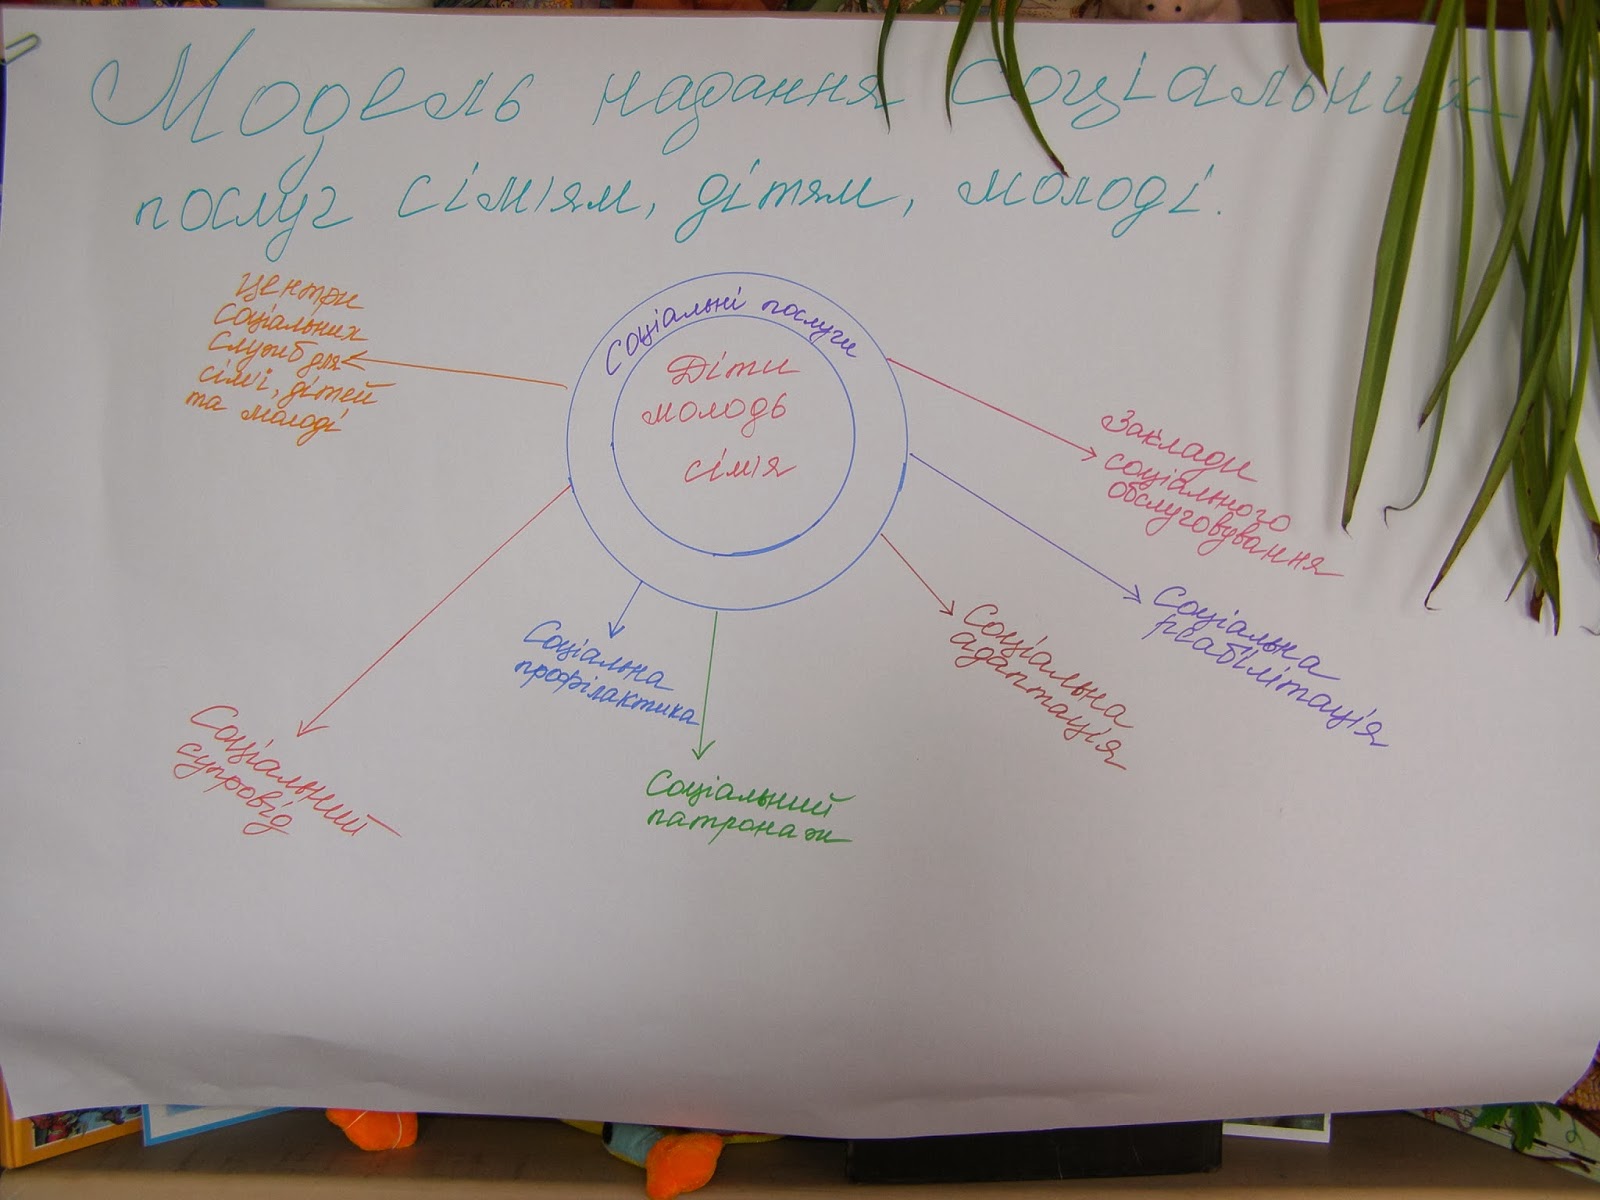 Модель надання соціальних
послуг сім'ям, дітям, молоді.
Соціальні послуги
Діти
молодь
сім'я
Центри
соціальних
служб для
сім'ї, дітей
та молоді
Заклади
соціального
обслуговування
Соціальна
реабілітація
Соціальна
адаптація
Соціальна
профілактика
Соціальний
патронаж
Соціальний
супровід